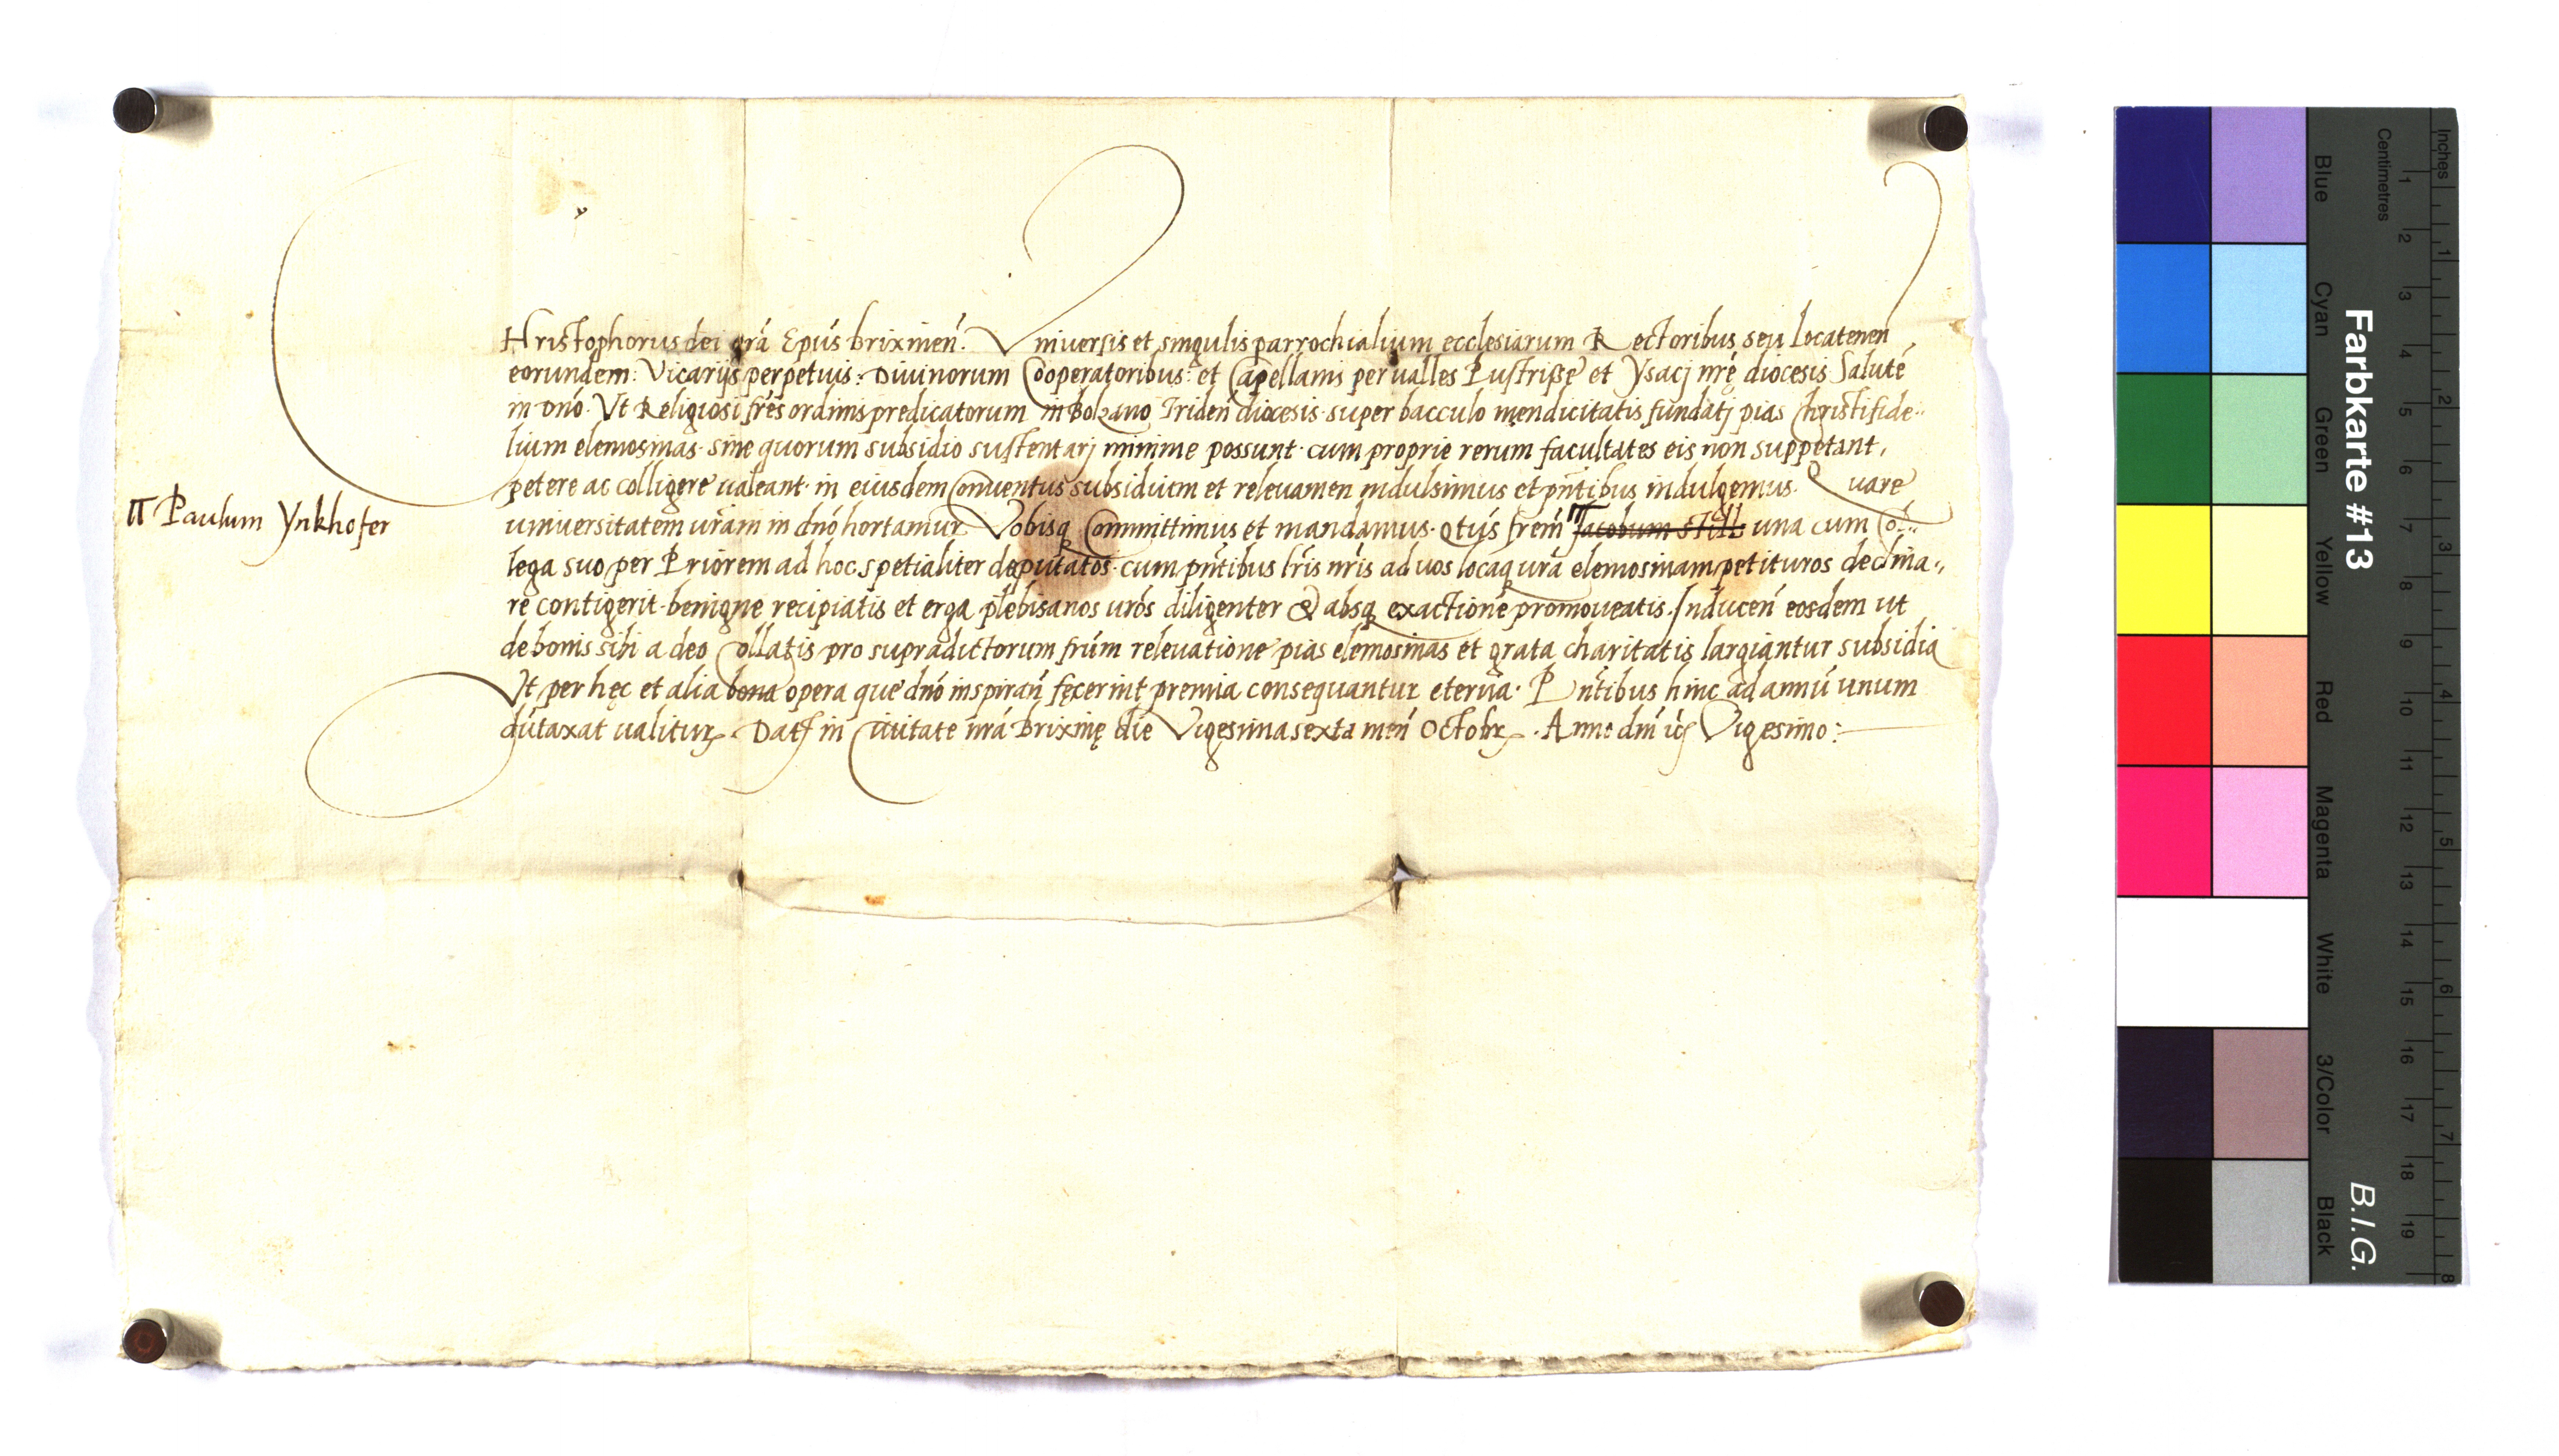 CHristophorus dei grã Epũs brixineñ. Vniuersis et singulis parrochialium ecclesiarum Rectoribus seu locatenen̄
eorundem: Vicarijs perpetuis: Diuinorum Cooperatoribus: et Capellanis per ualles Pustrisse et Ysacj nrę diocesis Salutē
in dnō. Vt Religiosi frēs ordinis predicatorum in Bolzano Trideñ diocesis super bacculo mendicitatis fundatj pias Christifide-
lium elemosinas sine quorum subsidio sustentarj minime possunt cum proprie rerum facultates eis non suppetant,
petere ac colligere ualeant in eiusdem Conuentus subsidium et releuamen indulsimus et pñtibus indulgemus. Quare
π Paulum Ynkhofer
uniuersitatem urãm in dnō hortamur Vobisq Committimus et mandamus. Qtūs frem̄ π Jacobum Still una cum Col-
lega suo per Priorem ad hoc spetialiter deputatos cum pñtibus lrīs nrīs ad uos locaq urã elemosinam petituros declina-
re contigerit benigne recipiatis et erga plebisanos urōs diligenter & absq exactione promoueatis. Inducen̄ eosdem ut
de bonis sibi a deo Collatis pro supradictorum frūm releuatione pias elemosinas et grata charitatis largiantur subsidia
Vt per hęc et alia bona opera que dnō inspiran̄ fęcerint premia consequantur eterna. Pñtibus hinc ad annū unum
dūtaxat ualitur. Dat in Ciuitate nrã Brixinę die Vigesimasexta meñ Octobr. Anno dnī Vigesimo:
Farbkarte #13
B.I.G.
Inches 1 2 3 4 5 6 7 8
Centimetres 1 2 3 4 5 6 7 8 9 10 11 12 13 14 15 16 17 18 19
Blue Cyan Green Yellow Red Magenta White 3/Color Black